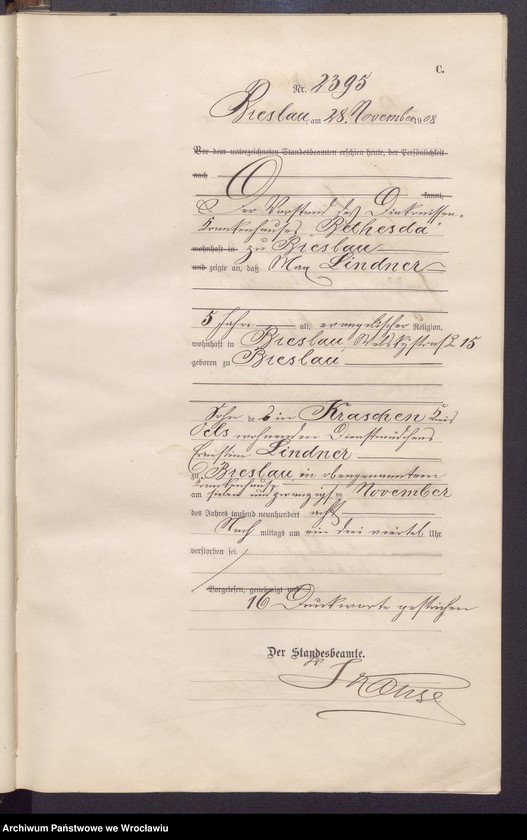 C.
Nr. 2395
Breslau, am 28. November 1908
Vor dem unterzeichneten Standesbeamten erschien heute, der Persönlichkeit
nach
kannt,
Der Vorstand des Diakonissen-
Krankenhauses Bethesda
wohnhaft in zu Breslau
und zeigte an, daß Max Lindner
5 Jahre alt, evangelischer Religion,
wohnhaft in Breslau 15
geboren zu Breslau
Sohn der in Kraschen Kreis
Oels wohnenden Dienstmädchens
Ernestine Lindner
zu Breslau in obengenanntem
Krankenhause
am sieben und zwanzigsten November
des Jahres tausend neunhundert acht
Nach mittags um ein drei viertel Uhr
verstorben sei.
Vorgelesen, genehmigt und
16 Druckworte gestrichen
Der Standesbeamte.
Archiwum Państwowe we Wrocławiu